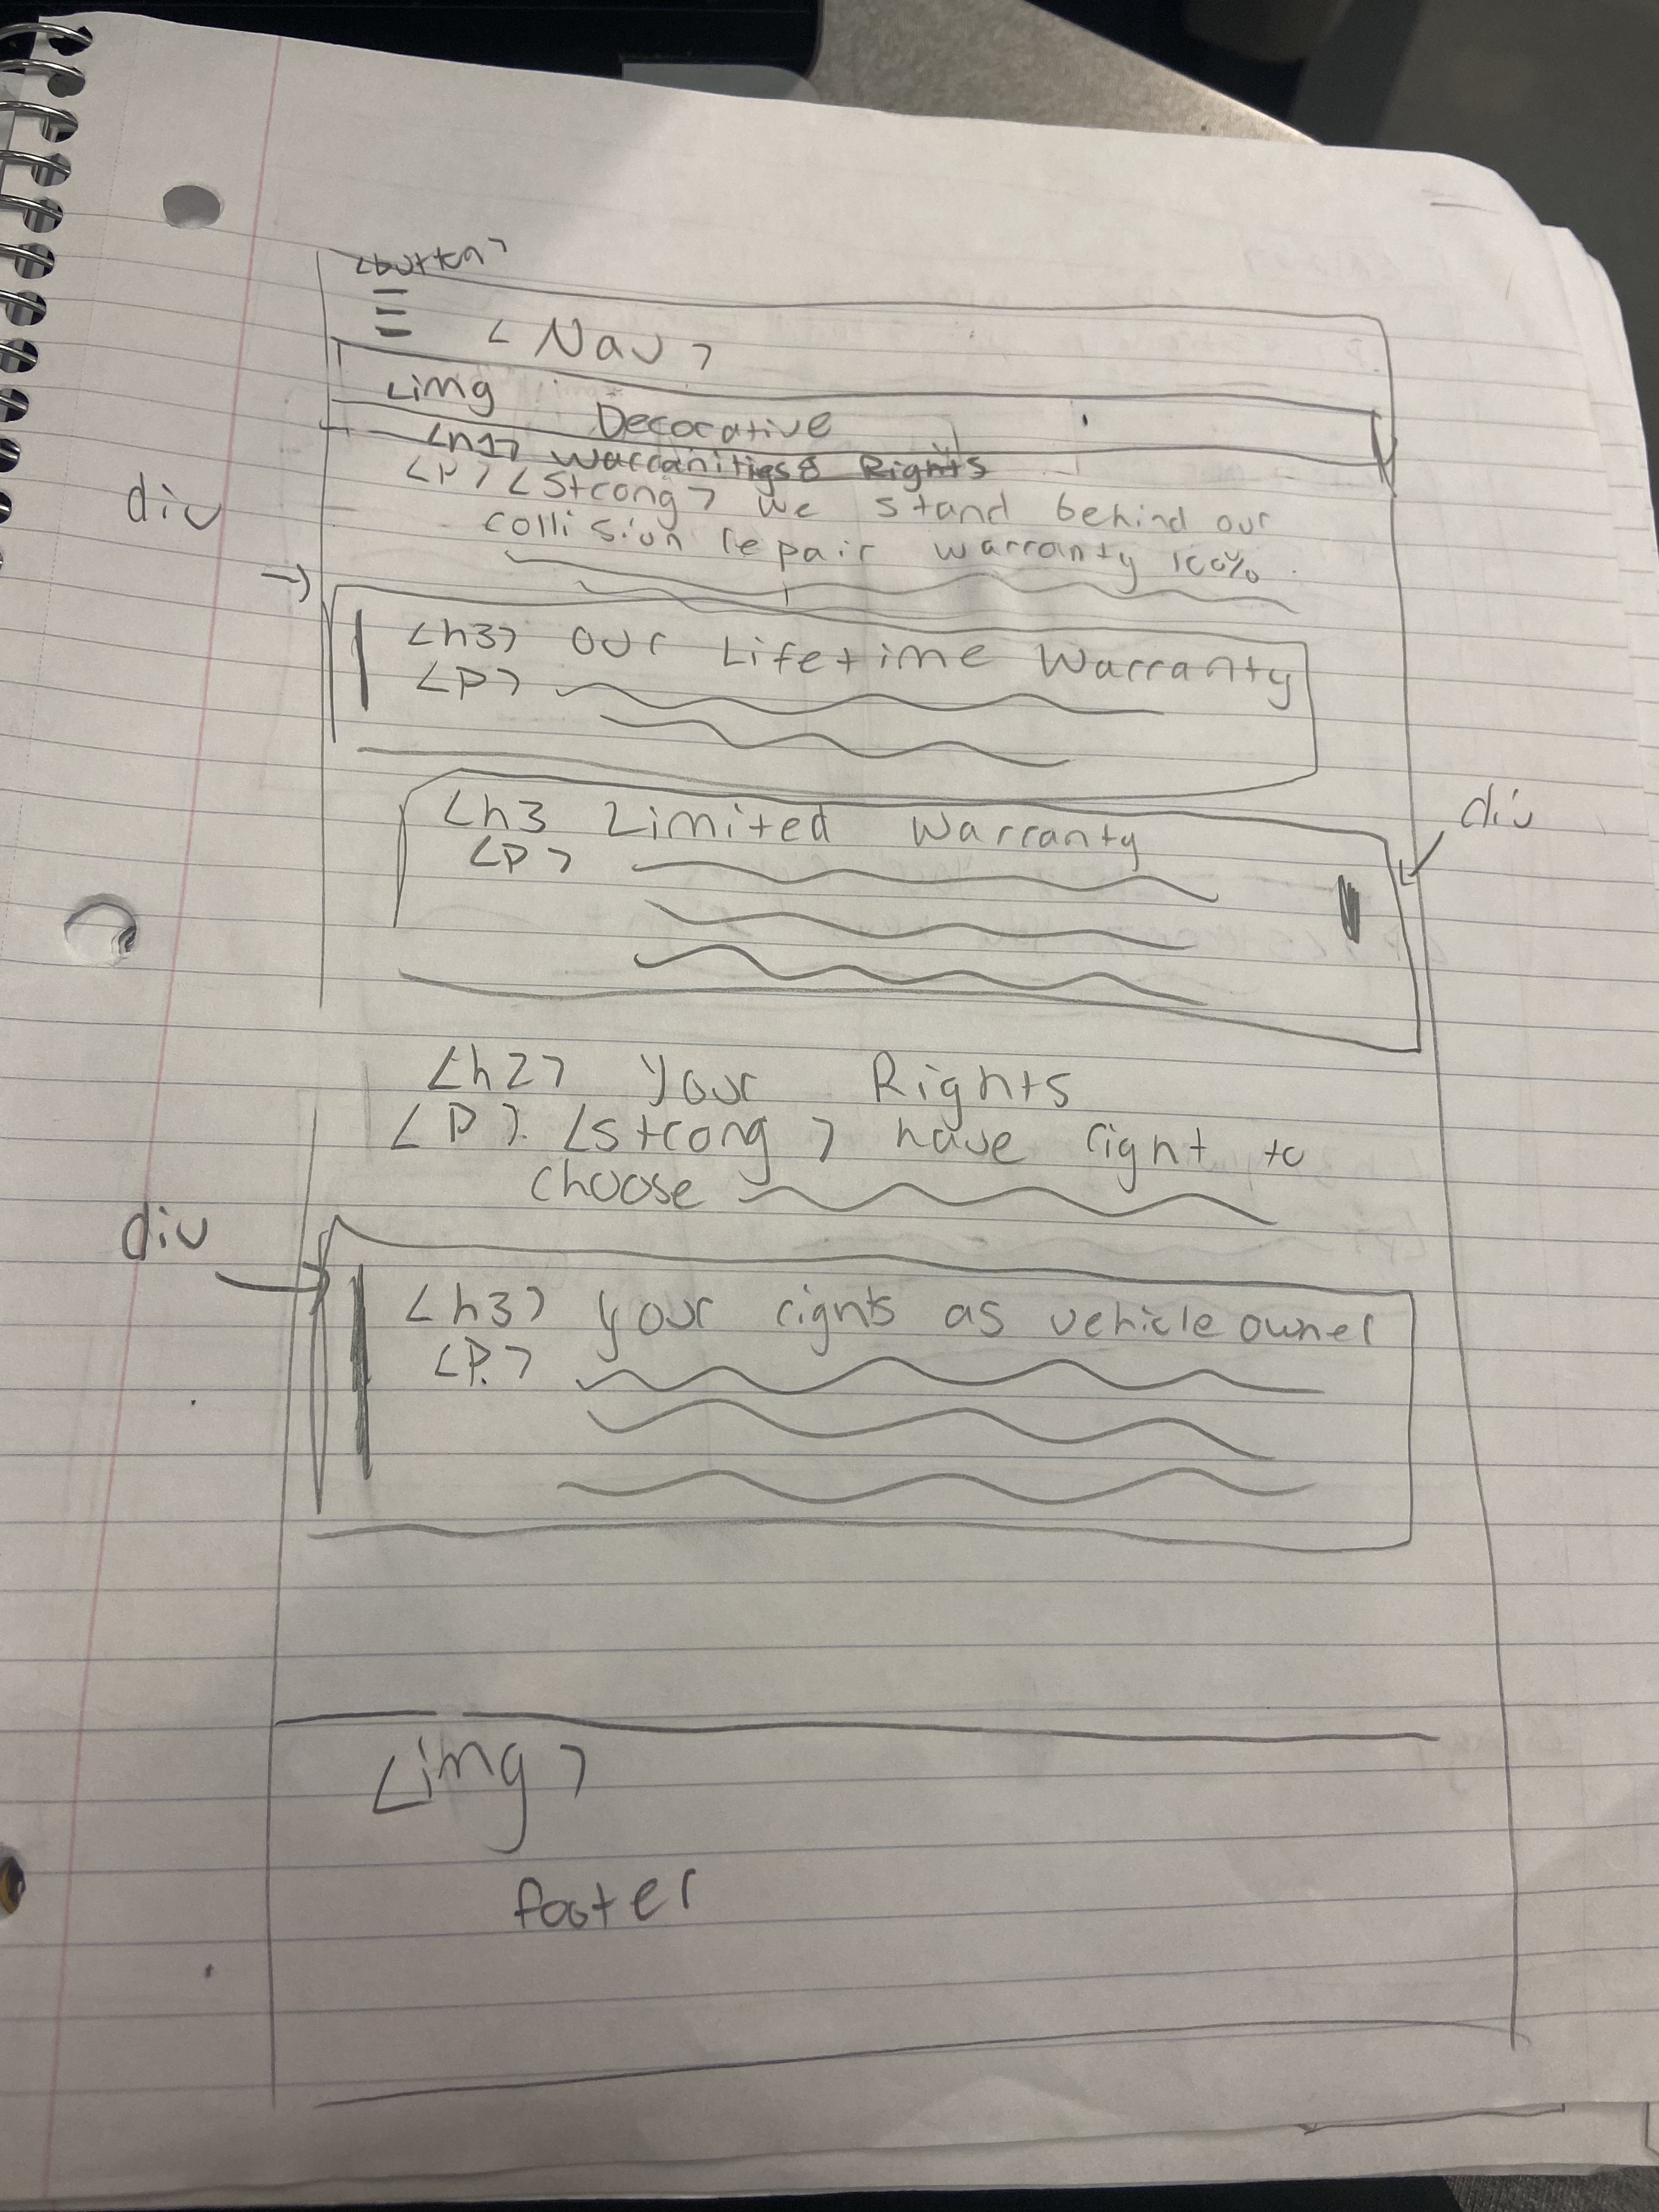 <button>
< Nav >
<img
Decorative
<h1> Warranities & Rights
<P> <Strong> we stand behind our
collision repair warranty 100%
div
<h3> our Lifetime Warranty
<P>
<h3 Limited Warranty
<P>
div
<h2> Your Rights
<P> <strong> have right to
choose
div
<h3> your rights as vehicle owner
<P.>
<img>
footer